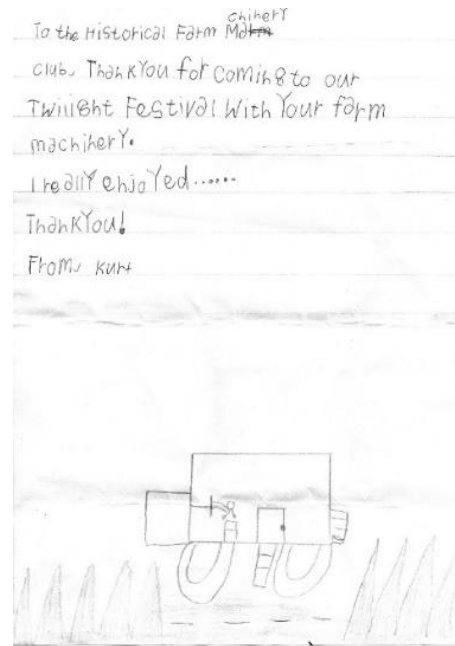 To the Historical Farm Machinery
club, Thankyou for coming to our
Twilight Festival with Your farm
machinery.
I really enjoyed......
ThankYou!
From, kurt